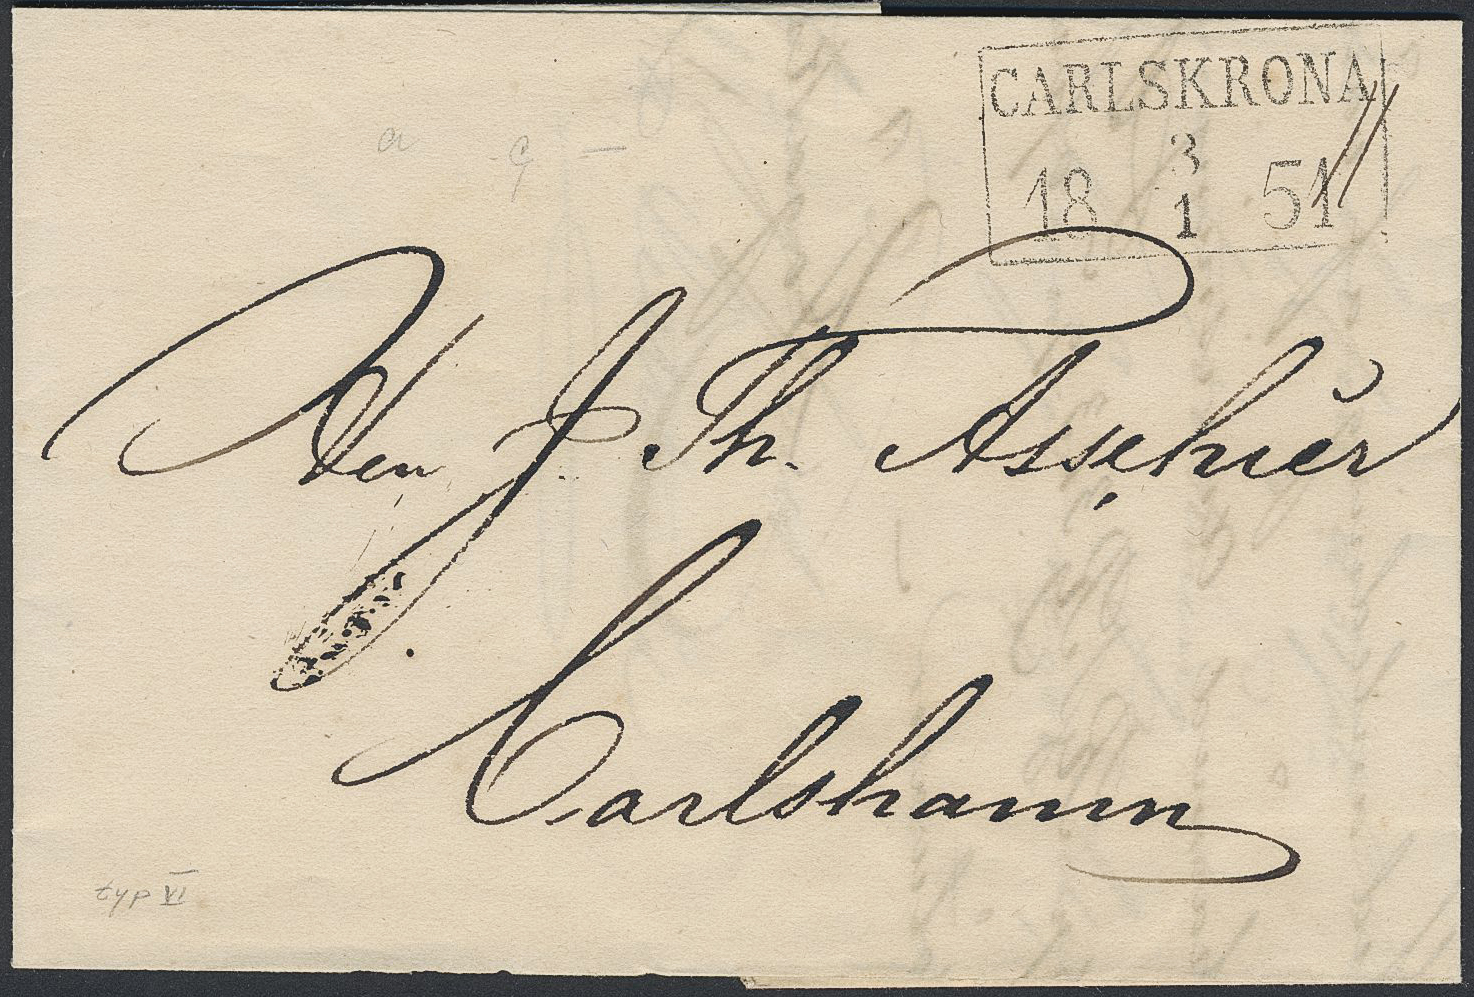 CARLSKRONA
3
18 1 51
a g —
Herr J Th. Asschiér
Carlshamn
typ VI